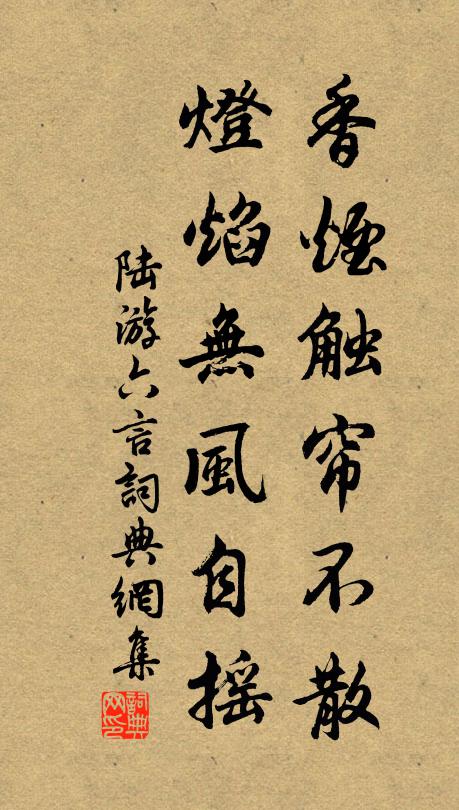 香煙触帘不散
燈焰無風自摇
陆游六言詞典網集
詞典网印